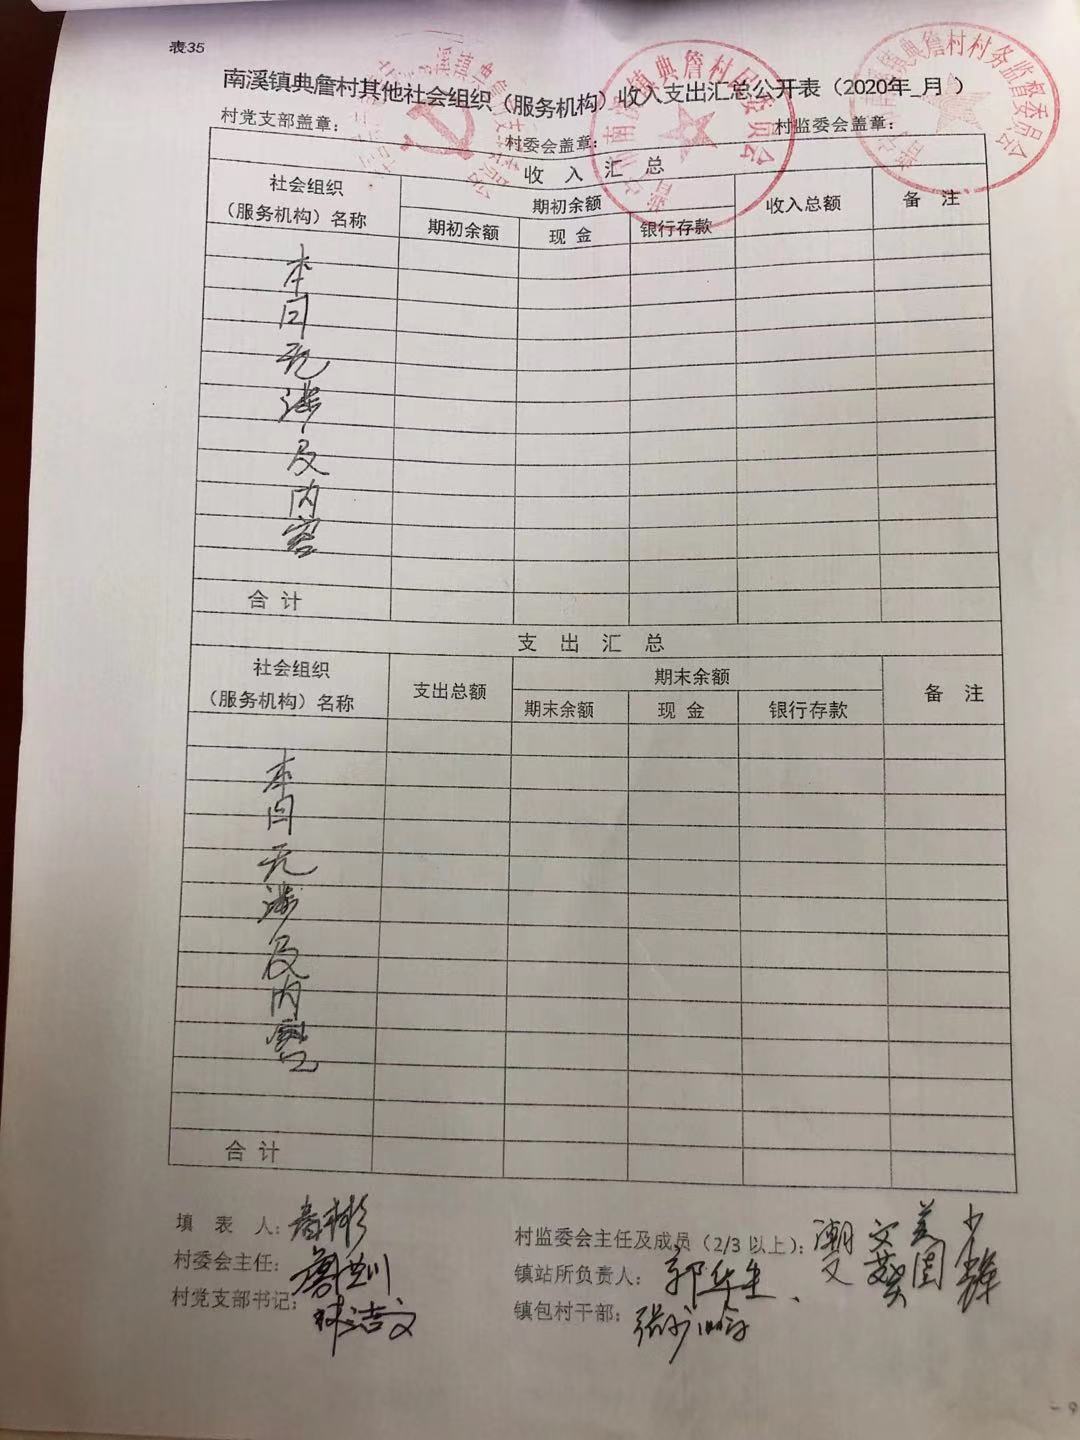 表35
南溪镇典詹村其他社会组织（服务机构）收入支出汇总公开表（2020年_月 ）
村党支部盖章： 村委会盖章： 村监委会盖章：
收 入 汇 总
社会组织（服务机构）名称 期初余额 收入总额 备 注
期初余额 现 金 银行存款
本
日
无
涉
及
内
容
合 计
支 出 汇 总
社会组织（服务机构）名称 支出总额 期末余额 备 注
期末余额 现 金 银行存款
本
日
无
涉
及
内
容
合 计
填 表 人：
村委会主任：
村党支部书记：林洁文
村监委会主任及成员（2/3 以上）：
镇站所负责人：郭华生
镇包村干部：
- 9